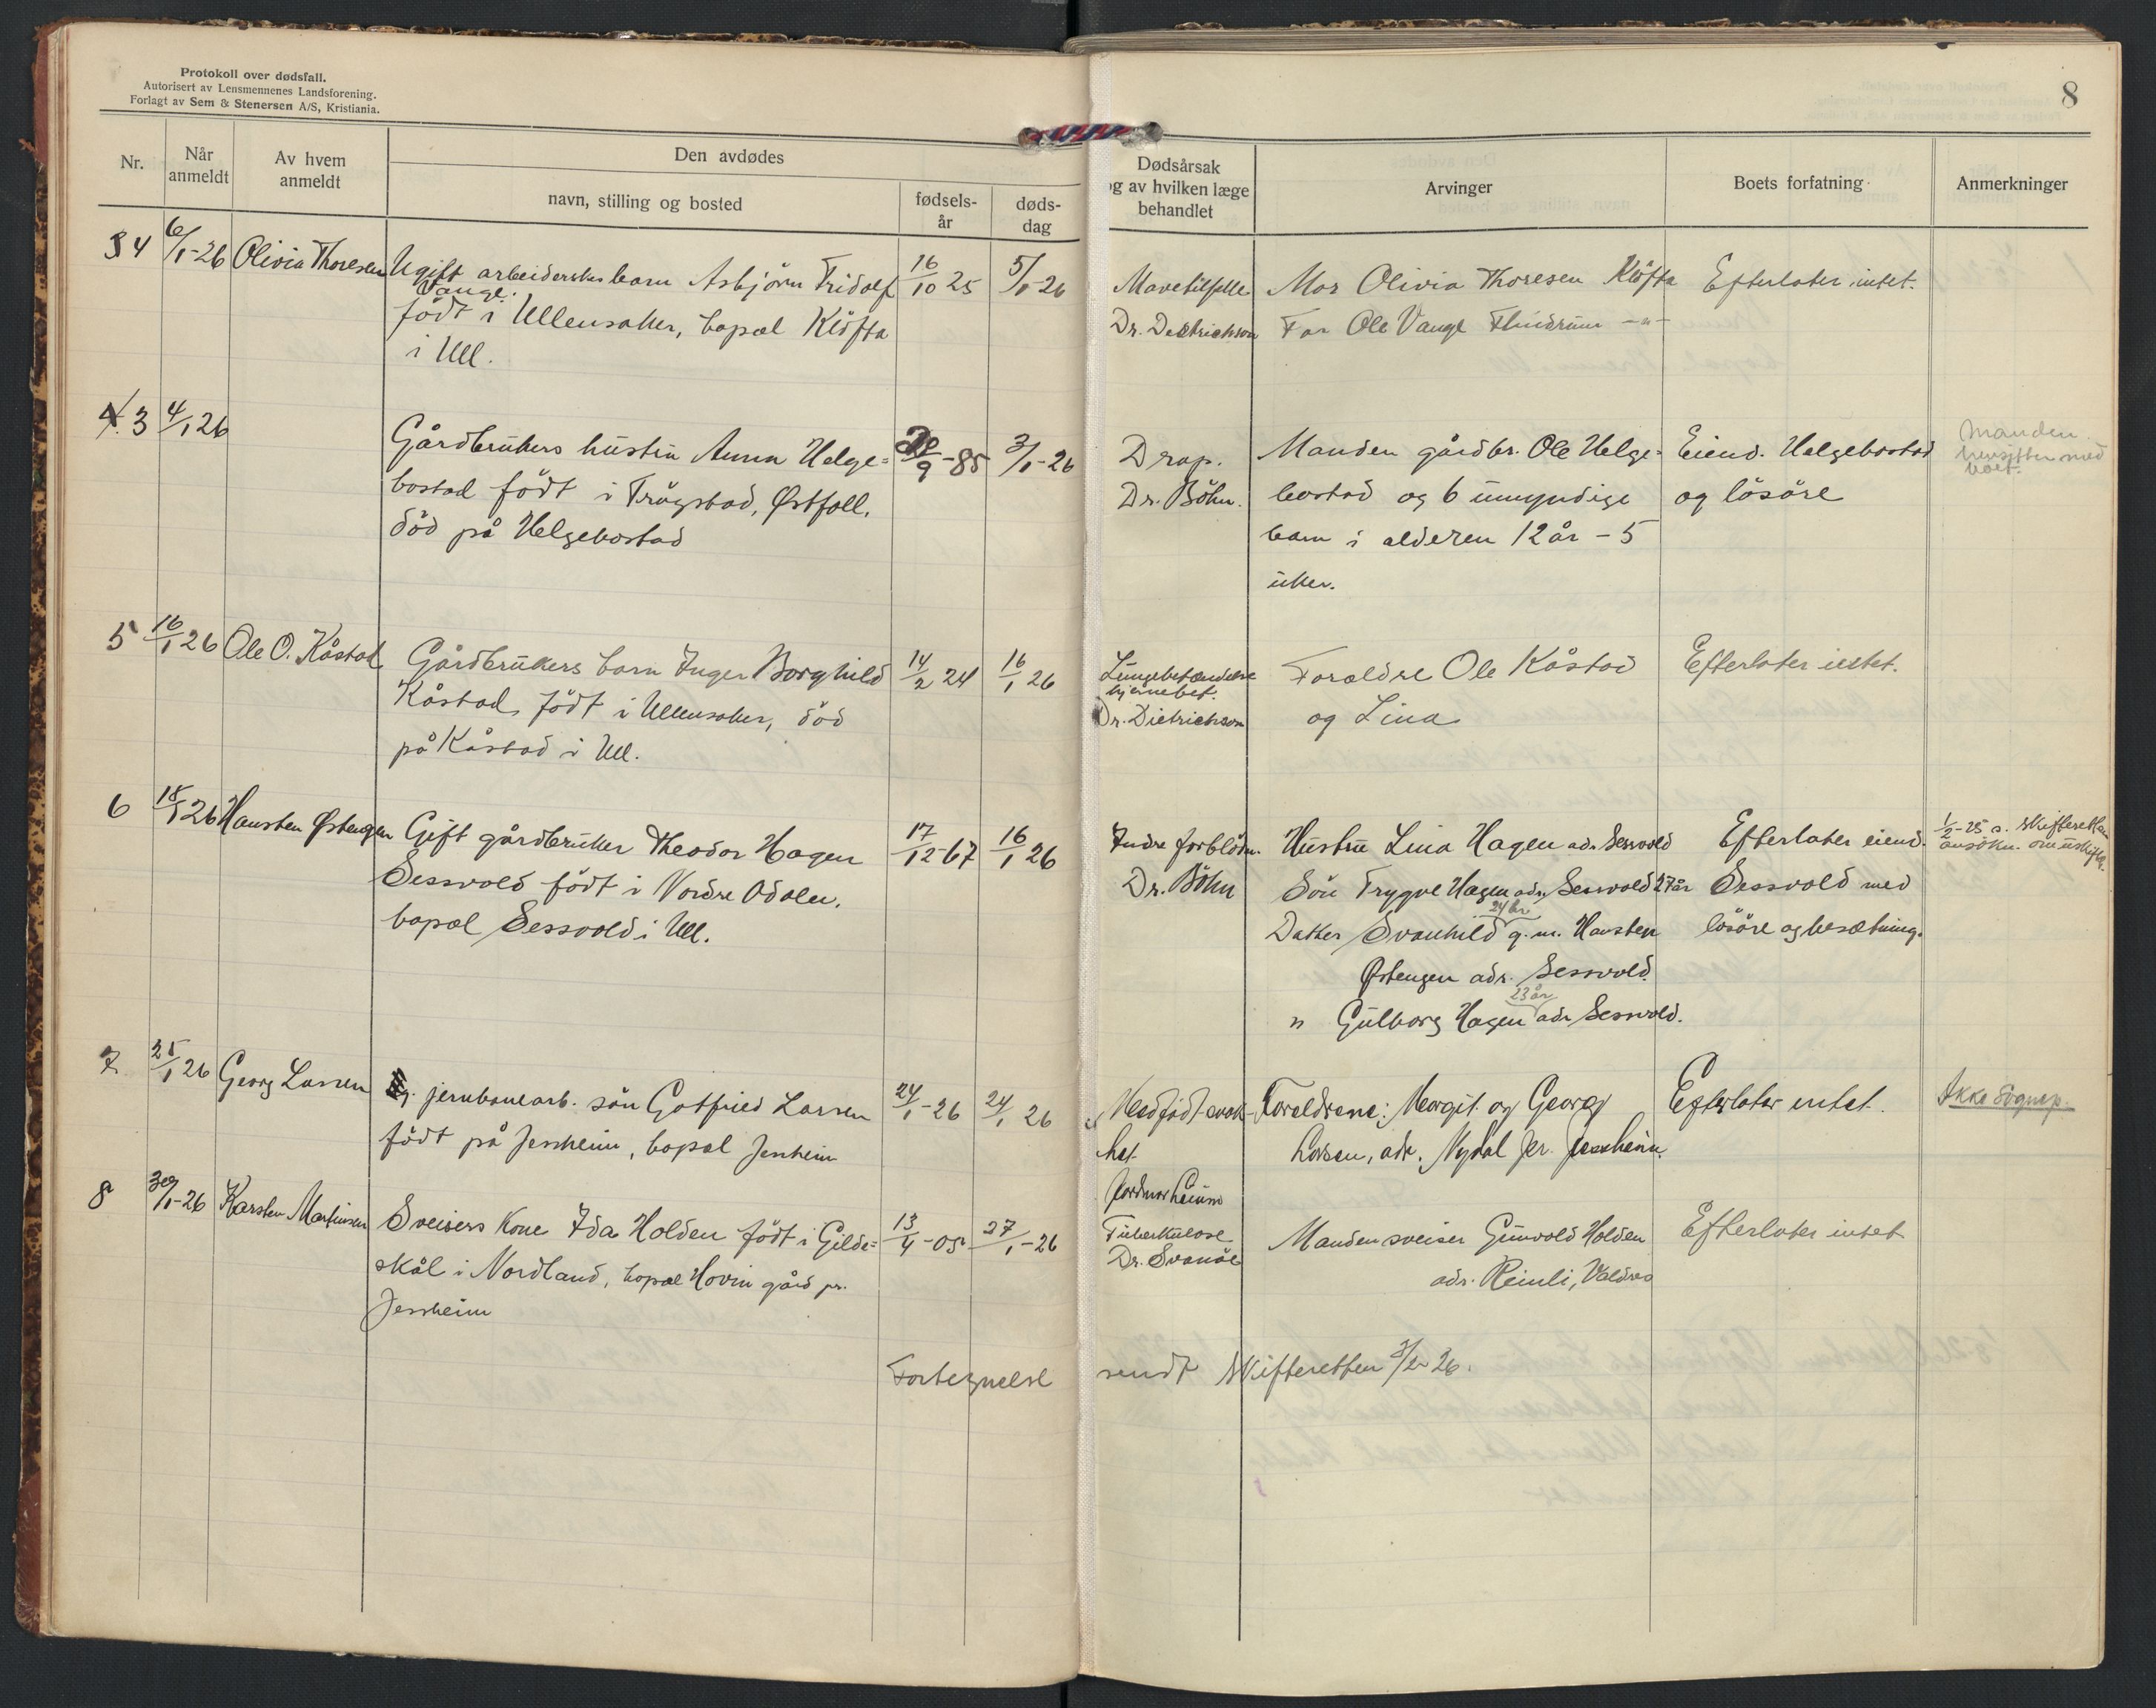 Protokoll over dødsfall.
Autorisert av Lensmennenes Landsforening.
Forlagt av Sem & Stenersen A/S, Kristiania.
8
Nr.
Når anmeldt
Av hvem anmeldt
Den avdødes
navn, stilling og bosted
fødsels-år
døds-dag
Dødsårsak og av hvilken læge behandlet
Arvinger
Boets forfatning
Anmerkninger
4 6/1-26 Olivia Thoresen
Ugift arbeiderskes barn Asbjörn Fridolf 16/10 25 5/1-26
Vangl.
födt i Ullensaker, bopæl Klöfta
i Ull.
Mavetilfelle
Dr. Dietrichson
Mor Olivia Thoresen Klöfta
Far Ole Vangl -"-
Efterlater intet.
3 4/1 26
Gårdbrukers hustru Anna Helge= 20/9-85 3/1-26
bostad födt i Trögstad, Østfoll.
död på Helgebostad
Drap.
Dr. Böhn.
Manden gårdbr. Ole Helge=
bostad og 6 umyndige
barn i alderen 12 år - 5
uker.
Eiend. Helgebostad
og lösöre
Manden
hensitter med
boet.
5 16/1 26 Ole O. Kåstad
Gårdbrukers barn Inger Borghild 14/2 24 16/1 26
Kåstad, födt i Ullensaker, död
på Kåstad i Ull.
Lungebetændelse
hjernebet.
Dr. Dietrichson
Foreldre Ole Kåstad
og Lina
Efterlater intet.
6 18/1 26 Hansten Østengen
Gift gårdbruker Theodor Hagen 17/12-67 16/1 26
Sessvold födt i Nordre Odalen,
bopæl Sessvold i Ull.
Indre forblödn.
Dr. Böhn
Hustru Lina Hagen adr. Sessvold
Sön Trygve Hagen adr. Sessvold 27 år
24 år
Datter Svanhild g. m. Hansten
Østengen adr. Sessvold.
23 år
" Gulborg Hagen adr Sessvold.
Efterlater eiend.
Sessvold med
lösöre og besætning.
1/2-25 s. skifteretten
ansökn. om uskifte.
7 25/1 26 Georg Larsen
jernbanearb. sön Gotfried Larsen 24/1-26 24/1 26
födt på Jessheim, bopæl Jessheim
Medfödt svak-
het
Jordmor
Foreldrene: Margit og Georg
Larsen, adr. Nydal pr. Jessheim.
Efterlater intet.
Ikke
8 30/1-26 Karsten Martinsen
Sveisers kone Ida Holden födt i Gilde= 13/4-05 27/1-26
skål i Nordland, bopæl Hovin gård pr.
Jessheim
Tuberkulose
Dr. Svanöe
Manden sveiser Gunvold Holden
adr. Reinli, Valdres
Efterlater intet
Fortegnelse sendt skifteretten 3/2 26.